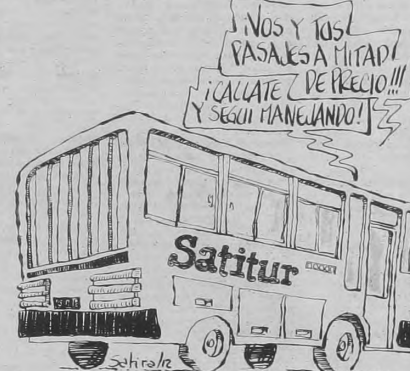 ¡VOS Y TUS
PASAJES A MITAD
DE PRECIO!!!
¡CALLATE
Y SEGUI MANEJANDO!
Satitur